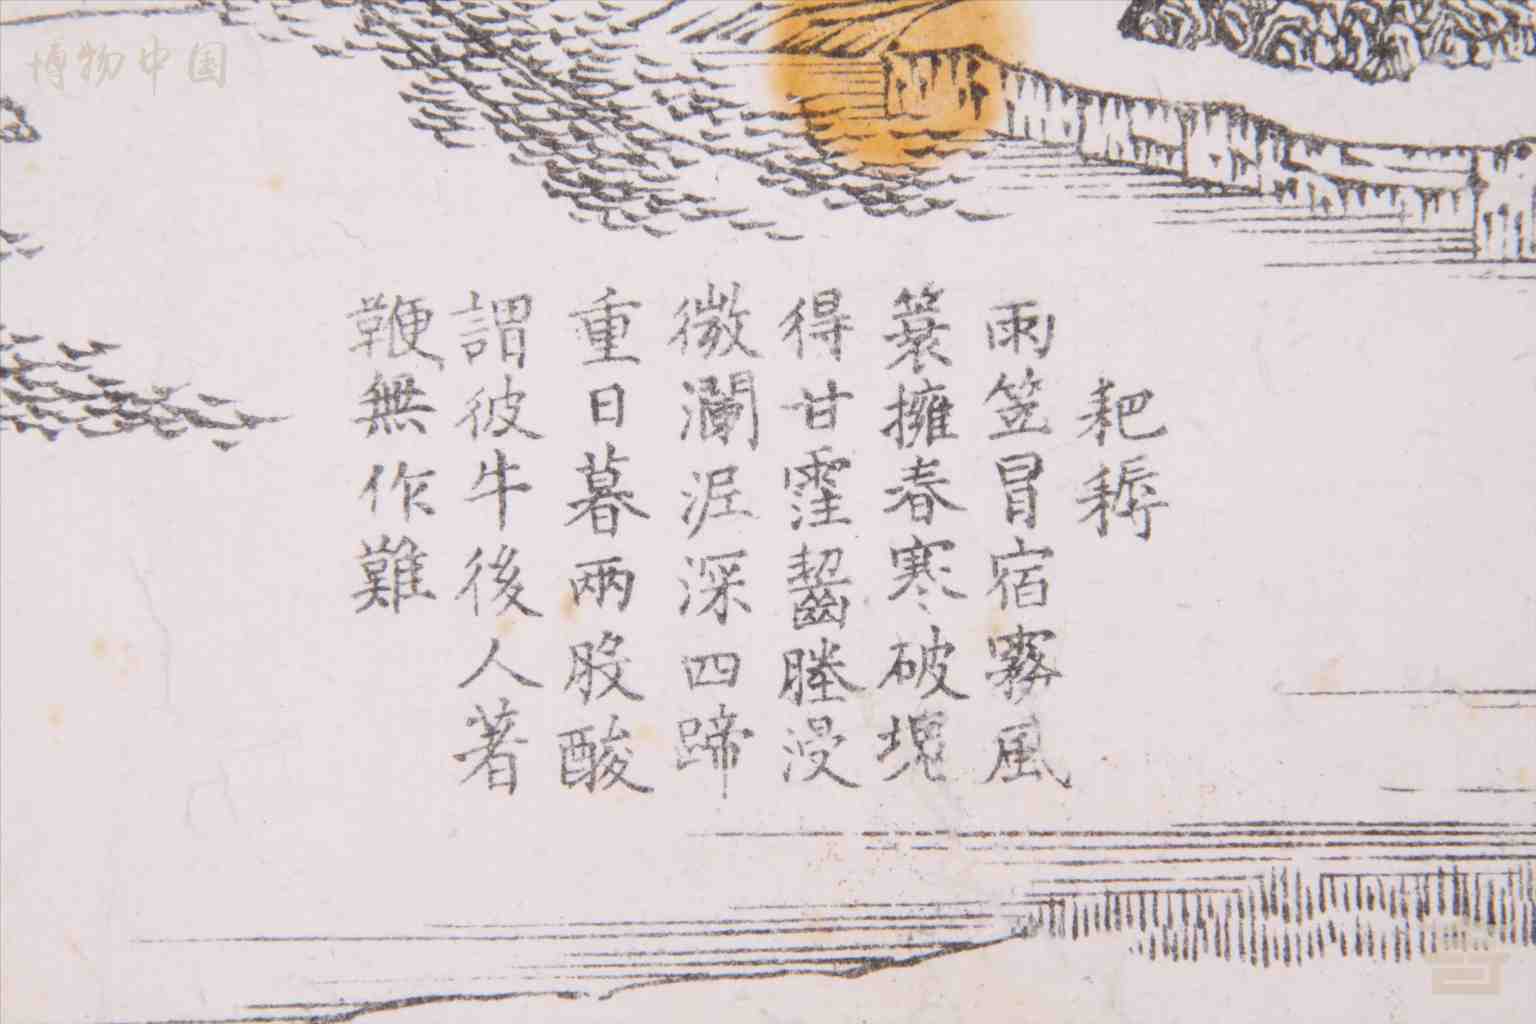 耙耨
雨笠冒宿霧風
簑擁春寒破塊
得甘霔齧塍浸
微瀾渥深四蹄
重日暮兩股酸
謂彼牛後人著
鞭無作難
博物中国